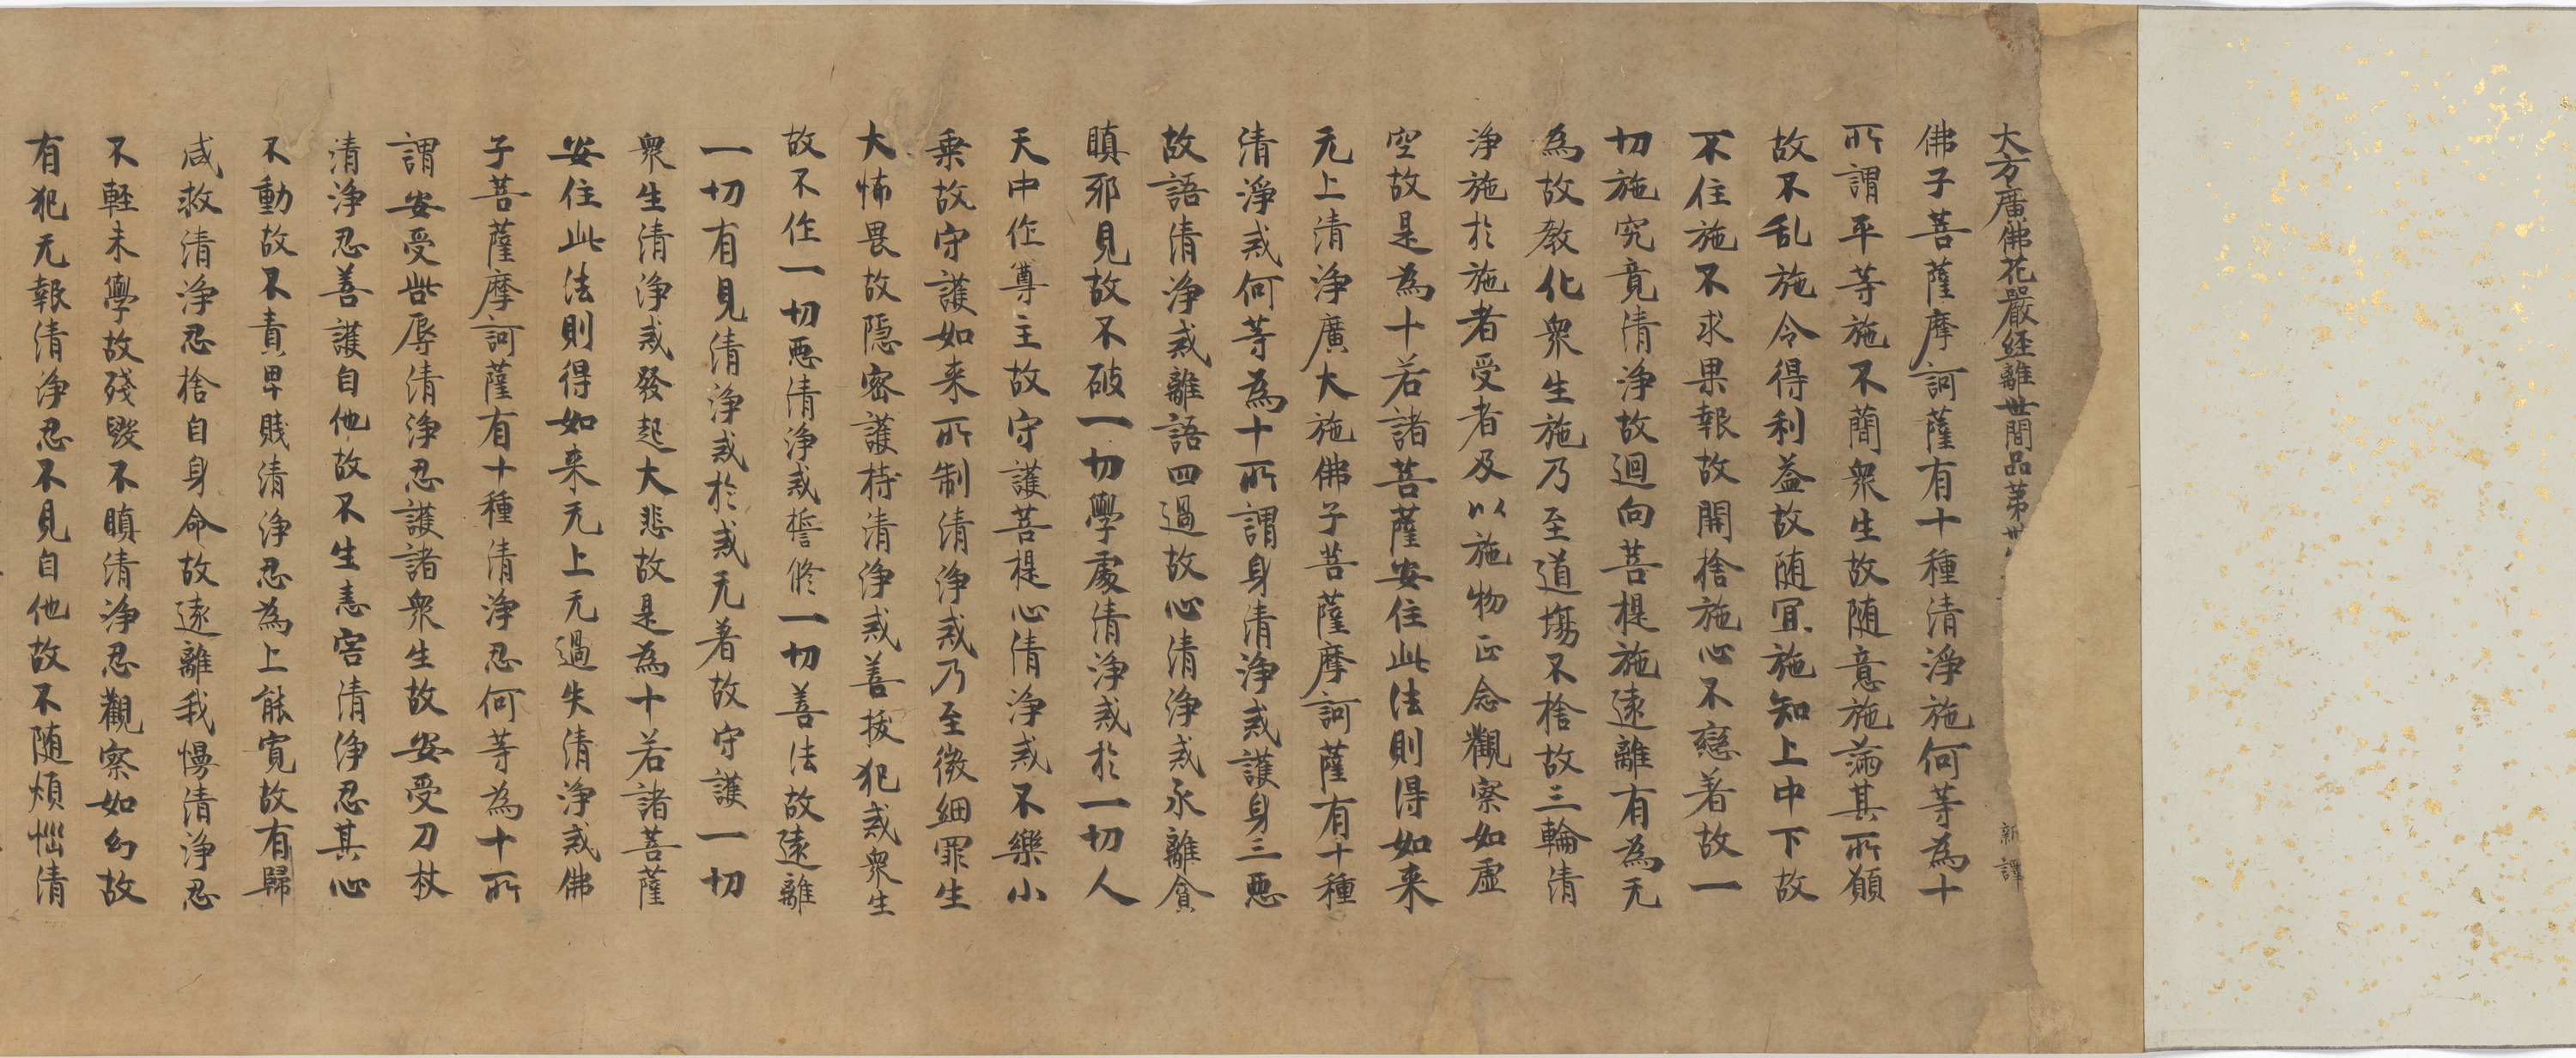 大方廣佛花嚴経離世間品苐卅 新譯
佛子菩薩摩訶薩有十種清淨施何等為十
所謂平等施不蕳衆生故随意施滿其所願
故不乱施令得利益故随冝施知上中下故
不住施不求果報故開捨施心不戀著故一
切施究竟清淨故迴向菩提施遠離有為无
為故教化衆生施乃至道塲不捨故三輪清
淨施扵施者受者及以施物正念觀察如虚
空故是為十若諸菩薩安住此法則得如来
无上清淨廣大施佛子菩薩摩訶薩有十種
清淨戒何等為十所謂身清淨戒護身三惡
故語清淨戒離語四過故心清淨戒永離貪
瞋邪見故不破一切學處清淨戒扵一切人
天中作尊主故守護菩提心清淨戒不樂小
乗故守護如来所制清淨戒乃至微細罪生
大怖畏故隠密護持清淨戒善拔犯戒衆生
故不作一切惡清淨戒誓修一切善法故遠離
一切有見清淨戒扵戒无著故守護一切
衆生清淨戒發起大悲故是為十若諸菩薩
安住此法則得如来无上无過失清淨戒佛
子菩薩摩訶薩有十種清淨忍何等為十所
謂安受呰辱清淨忍護諸衆生故安受刀杖
清淨忍善護自他故不生恚害清淨忍其心
不動故不責卑賎清淨忍為上能寛故有歸
咸救清淨忍捨自身命故遠離我慢清淨忍
不輕未學故殘毀不瞋清淨忍觀察如幻故
有犯无報清淨忍不見自他故不随煩惱清